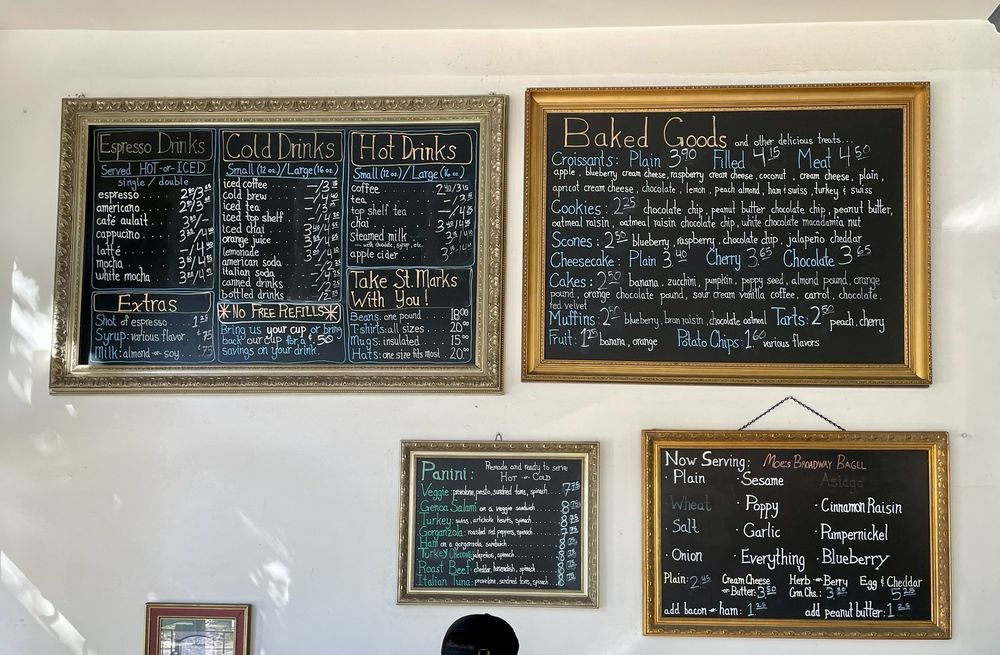 Espresso Drinks
Served HOT-or-ICED
single / double
espresso
americano
café aulait
cappucino
latté
mocha
white mocha
Extras
Shot of espresso 1.25
Syrup: various flavor .75
Milk: almond or soy .75
Cold Drinks
Small (12 oz.)/Large (16 oz.)
iced coffee
cold brew
iced tea
iced top shelf
iced chai
orange juice
lemonade
american soda
italian soda
canned drinks
bottled drinks
*NO FREE REFILLS*
Bring us your cup or bring
back our cup for a $.50
savings on your drink.
Hot Drinks
Small (12 oz.)/Large (16 oz.)
coffee
tea
top shelf tea
chai
steamed milk
with chocolate, syrup, etc.
apple cider
Take St. Marks
With You!
Beans: one pound 18.00
T-shirts: all sizes 20.00
Mugs: insulated 15.00
Hats: one size fits most 20.00
Baked Goods and other delicious treats...
Croissants: Plain 3.90 Filled 4.15 Meat 4.50
apple, blueberry cream cheese, raspberry cream cheese, coconut, cream cheese, plain,
apricot cream cheese, chocolate, lemon, peach almond, ham & swiss, turkey & swiss
Cookies: 2.25 chocolate chip, peanut butter chocolate chip, peanut butter,
oatmeal raisin, oatmeal raisin chocolate chip, white chocolate macadamia nut
Scones: 2.50 blueberry, raspberry, chocolate chip, jalapeño cheddar
Cheesecake: Plain 3.40 Cherry 3.65 Chocolate 3.65
Cakes: 2.50 banana, zucchini, pumpkin, poppy seed, almond pound, orange
pound, orange chocolate pound, sour cream vanilla coffee, carrot, chocolate,
red velvet
Muffins: 2.50 blueberry, bran raisin, chocolate oatmeal Tarts: 2.50 peach, cherry
Fruit: 1.25 banana, orange Potato Chips: 1.60 various flavors
Panini: Premade and ready to serve
HOT or COLD
Veggie: provolone, pesto, sundried toms, spinach 7.75
Genoa Salami on a veggie sandwich
Turkey: swiss, artichoke hearts, spinach
Gorganzola: roasted red peppers, spinach
Ham on a gorganzola sandwich
Turkey jalapeños, spinach
Roast Beef: cheddar, horseradish, spinach
Italian Tuna: provolone, sundried toms, spinach
Now Serving: Moe's Broadway Bagel
· Plain · Sesame Asiago
Wheat · Poppy · Cinnamon Raisin
· Salt · Garlic · Pumpernickel
· Onion · Everything · Blueberry
Plain: 2.45 Cream Cheese or Butter: 3.50 Herb or Berry Crm Chs.: 3 Egg & Cheddar 5.25
add bacon or ham: 1.25 add peanut butter: 1.25